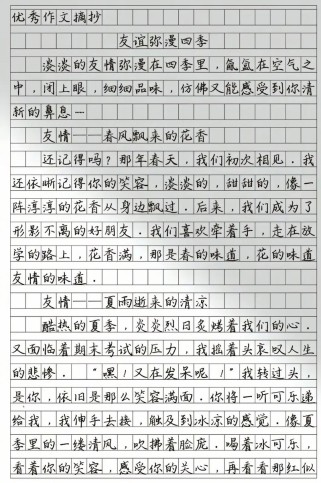 优秀作文摘抄
友谊弥漫四季
淡淡的友情弥漫在四季里，氤氲在空气之
中，闭上眼，细细品味，仿佛又能感受到你清
新的鼻息…
友情——春风飘来的花香
还记得吗？那年春天，我们初次相见．我
还依晰记得你的笑容，淡淡的，甜甜的，像一
阵淳淳的花香从身边飘过．后来，我们成为了
形影不离的好朋友．我们喜欢牵着手，走在放
学的路上，花香满，那是春的味道，花的味道
友情的味道．
友情——夏雨逝来的清凉
酷热的夏季，炎炎烈日炙烤着我们的心．
又面临着期末考试的压力，我摇着头哀叹人生
的悲惨．“嘿！又在发呆呢！”我转过头，
是你，依旧是那么笑容满面．你将一听可乐递
给我，我伸手去接，触及到冰凉的感觉．像夏
季里的一缕清风，吹拂着脸庞．喝着冰可乐，
看着你的笑容，感受你的关心，再看看那红似